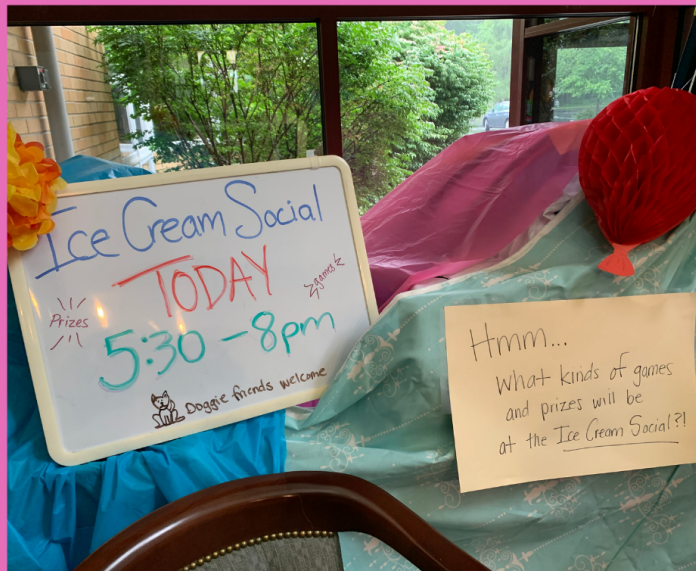 Ice Cream Social
TODAY
games
Prizes
5:30 - 8pm
Doggie friends welcome
Hmm...
What kinds of games
and prizes will be
at the Ice Cream Social?!